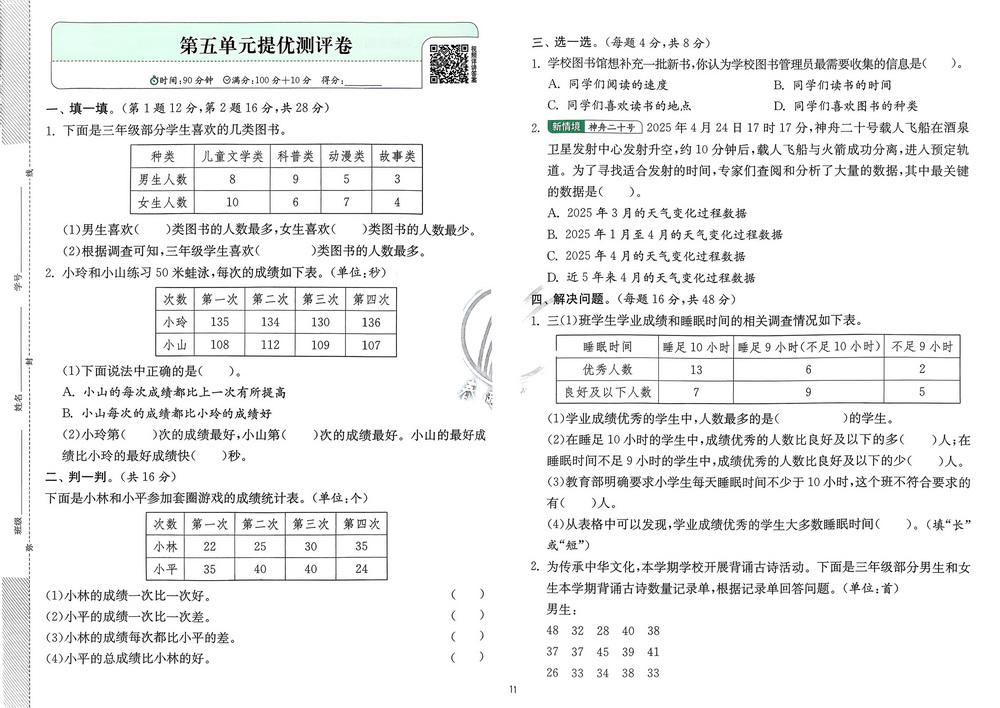 第五单元提优测评卷
时间:90分钟 满分:100分+10分 得分:
视频讲评答案
学号
姓名
班级
线
封
弥
一、填一填。(第1题12分,第2题16分,共28分)
1. 下面是三年级部分学生喜欢的几类图书。
种类 儿童文学类 科普类 动漫类 故事类
男生人数 8 9 5 3
女生人数 10 6 7 4
(1)男生喜欢( )类图书的人数最多,女生喜欢( )类图书的人数最少。
(2)根据调查可知,三年级学生喜欢( )类图书的人数最多。
2. 小玲和小山练习50米蛙泳,每次的成绩如下表。(单位:秒)
次数 第一次 第二次 第三次 第四次
小玲 135 134 130 136
小山 108 112 109 107
(1)下面说法中正确的是( )。
A. 小山的每次成绩都比上一次有所提高
B. 小山每次的成绩都比小玲的成绩好
(2)小玲第( )次的成绩最好,小山第( )次的成绩最好。小山的最好成
绩比小玲的最好成绩快( )秒。
二、判一判。(共16分)
下面是小林和小平参加套圈游戏的成绩统计表。(单位:个)
次数 第一次 第二次 第三次 第四次
小林 22 25 30 35
小平 35 40 40 24
(1)小林的成绩一次比一次好。 ( )
(2)小平的成绩一次比一次差。 ( )
(3)小林的成绩每次都比小平的差。 ( )
(4)小平的总成绩比小林的好。 ( )
三、选一选。(每题4分,共8分)
1. 学校图书馆想补充一批新书,你认为学校图书管理员最需要收集的信息是( )。
A. 同学们阅读的速度 B. 同学们读书的时间
C. 同学们喜欢读书的地点 D. 同学们喜欢图书的种类
2. 新情境 神舟二十号 2025年4月24日17时17分,神舟二十号载人飞船在酒泉
卫星发射中心发射升空,约10分钟后,载人飞船与火箭成功分离,进入预定轨
道。为了寻找适合发射的时间,专家们查阅和分析了大量的数据,其中最关键
的数据是( )。
A. 2025年3月的天气变化过程数据
B. 2025年1月至4月的天气变化过程数据
C. 2025年4月的天气变化过程数据
D. 近5年来4月的天气变化过程数据
四、解决问题。(每题16分,共48分)
1. 三(1)班学生学业成绩和睡眠时间的相关调查情况如下表。
睡眠时间 睡足10小时 睡足9小时(不足10小时) 不足9小时
优秀人数 13 6 2
良好及以下人数 7 9 5
(1)学业成绩优秀的学生中,人数最多的是( )的学生。
(2)在睡足10小时的学生中,成绩优秀的人数比良好及以下的多( )人;在
睡眠时间不足9小时的学生中,成绩优秀的人数比良好及以下的少( )人。
(3)教育部明确要求小学生每天睡眠时间不少于10小时,这个班不符合要求的
有( )人。
(4)从表格中可以发现,学业成绩优秀的学生大多数睡眠时间( )。(填“长”
或“短”)
2. 为传承中华文化,本学期学校开展背诵古诗活动。下面是三年级部分男生和女
生本学期背诵古诗数量记录单,根据记录单回答问题。(单位:首)
男生:
48 32 28 40 38
37 37 45 39 41
26 33 34 38 33
11